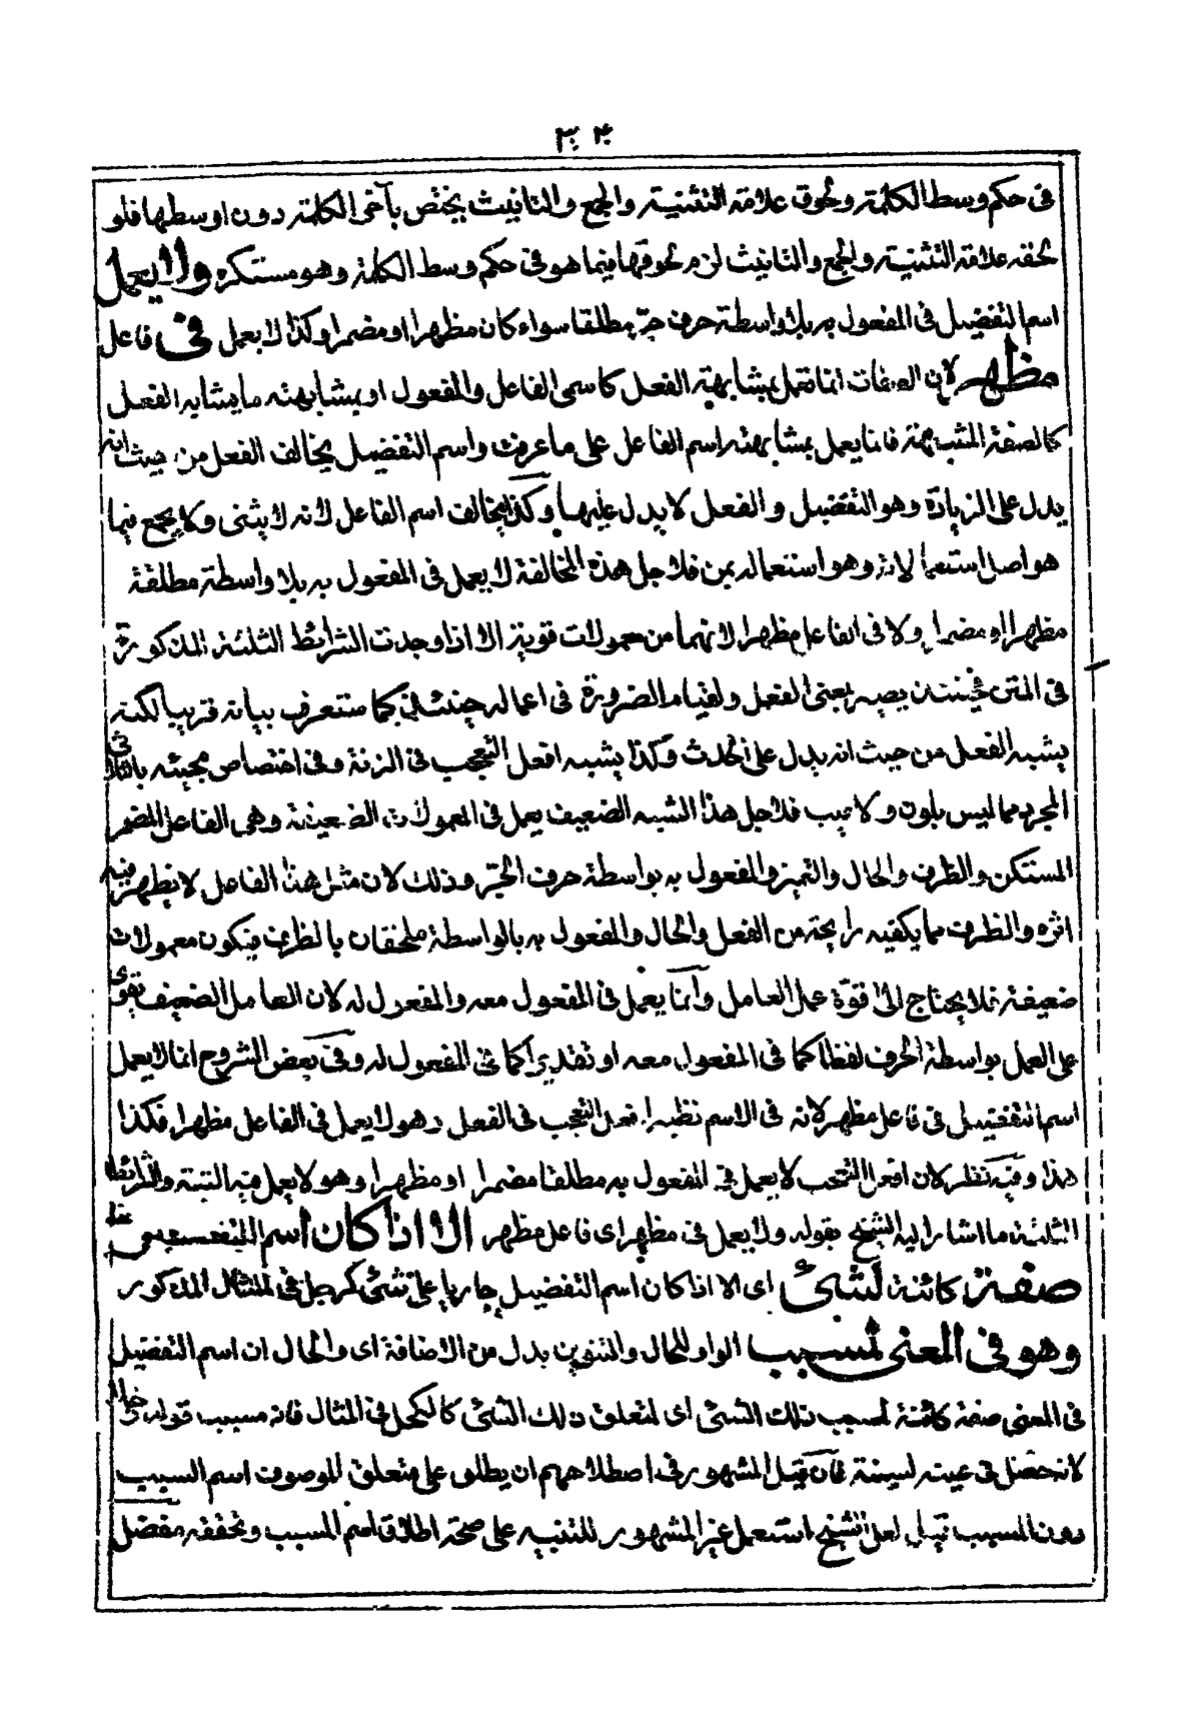 ۳۰۴
فى حكم وسط الكلمة ولحوق علامة التثنية والجمع والتانيث يختص بآخر الكلمة دون اوسطها فلو
لحقه علامة التثنية والجمع والتانيث لزم لحوقها فيما هو فى حكم وسط الكلمة وهو مستكره ولا يعمل
اسم التفضيل فى المفعول به بلا واسطة حرف جر مطلقا سواء كان مظهرا او مضمرا وكذا لا يعمل فى فاعل
مظهر لان الصفات انما تعمل بمشابهة الفعل كاسمى الفاعل والمفعول او بمشابهته ما يشابه الفعل
كالصفة المشبهة فانما يعمل بمشابهته اسم الفاعل على ما عرفت واسم التفضيل يخالف الفعل من حيث انه
يدل على الزيادة وهو التفضيل والفعل لا يدل عليها وكذا يخالف اسم الفاعل لانه لا يثنى ولا يجمع فيما
هو اصل استعمالاته وهو استعماله بمن فلاجل هذه المخالفة لا يعمل فى المفعول به بلا واسطة مطلقة
مظهرا او مضمرا ولا فى الفاعل مظهرا لانهما من معمولات قوية الا اذا وجدت الشرائط الثلثة المذكورة
فى المتن فحينئذ يصير بمعنى الفعل ولقيام الضرورة فى اعماله حينئذ كما ستعرف بيانه قريبا لكنه
يشبه الفعل من حيث انه يدل على الحدث وكذا يشبه افعل التعجب فى الزنة وفى اختصاص مجيئه بالثلاثى
المجرد مما ليس بلون ولا عيب فلاجل هذا الشبه الضعيف يعمل فى المعمولات الضعيفة وهى الفاعل المضمر
المستكن والظرف والحال والتميز والمفعول به بواسطة حرف الجر وذلك لان مثل هذا الفاعل لا يظهر فيه
اثره والظرف مما يكفيه رايحة من الفعل والحال والمفعول به بالواسطة ملحقان بالظرف فيكون معمولات
ضعيفة فلا يحتاج الى قوة عمل العامل وانما يعمل فى المفعول معه والمفعول له لان العامل الضعيف يقوى
على العمل بواسطة الحرف لفظا كما فى المفعول معه او تقديرا كما فى المفعول له وفى بعض الشروح انما لا يعمل
اسم التفضيل فى فاعل مظهر لانه فى الاسم نظير افعل التعجب فى الفعل وهو لا يعمل فى الفاعل مظهرا فكذا
هذا وفيه نظر لان افعل التعجب لا يعمل فى المفعول به مطلقا مضمرا او مظهرا وهو لا يعمل فيه البتة والشرائط
الثلثة ما اشار اليه الشيخ بقوله ولا يعمل فى مظهر اى فاعل مظهر الا اذا كان اسم التفضيل
صفة كائنة لشئ اى الا اذا كان اسم التفضيل جاريا على شئ كرجل فى المثال المذكور
وهو فى المعنى لمسبب الواو للحال والتنوين بدل من الاضافة اى والحال ان اسم التفضيل
فى المعنى صفة كائنة لمسبب ذلك الشئ اى لمتعلق ذلك الشئ كالكحل فى المثال فانه مسبب
لانه حصل فى عينه لسببه فان قيل المشهور فى اصطلاحهم ان يطلق على متعلق الموصوف اسم السبب
دون المسبب قيل لعل الشيخ استعمل غير المشهور للتنبيه على صحة اطلاق اسم المسبب وتحقيقه مفصل